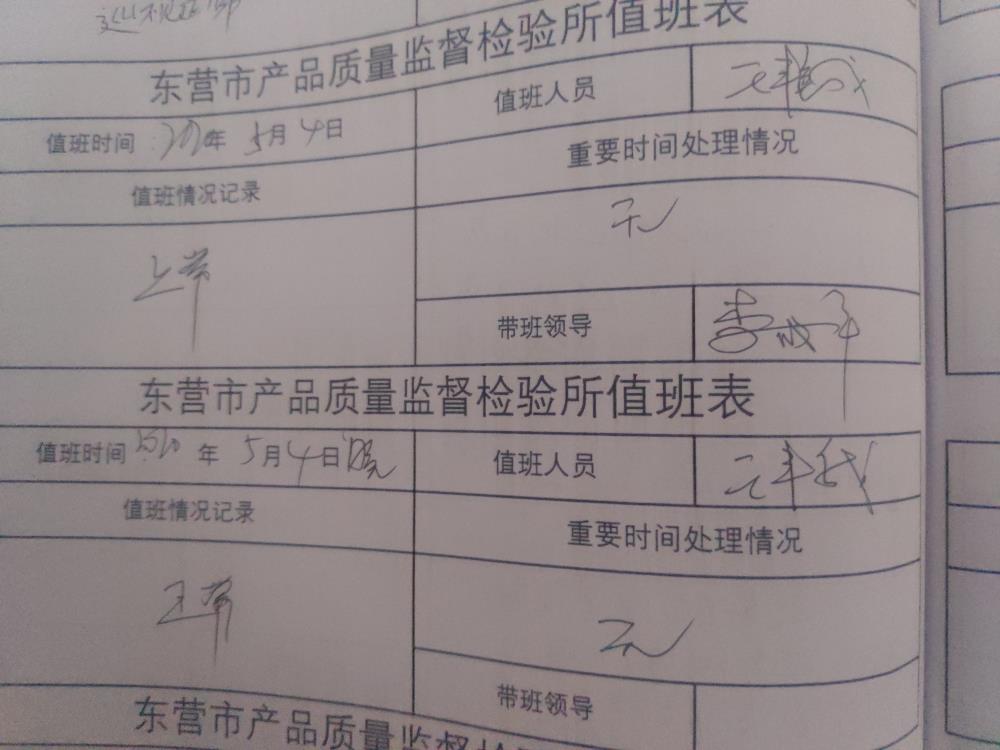 东营市产品质量监督检验所值班表
值班时间 年 5月4日 值班人员
值班情况记录 重要时间处理情况
正常 无
带班领导
东营市产品质量监督检验所值班表
值班时间 年 5月4日 晚 值班人员
值班情况记录 重要时间处理情况
正常 无
带班领导
东营市产品质量监督检